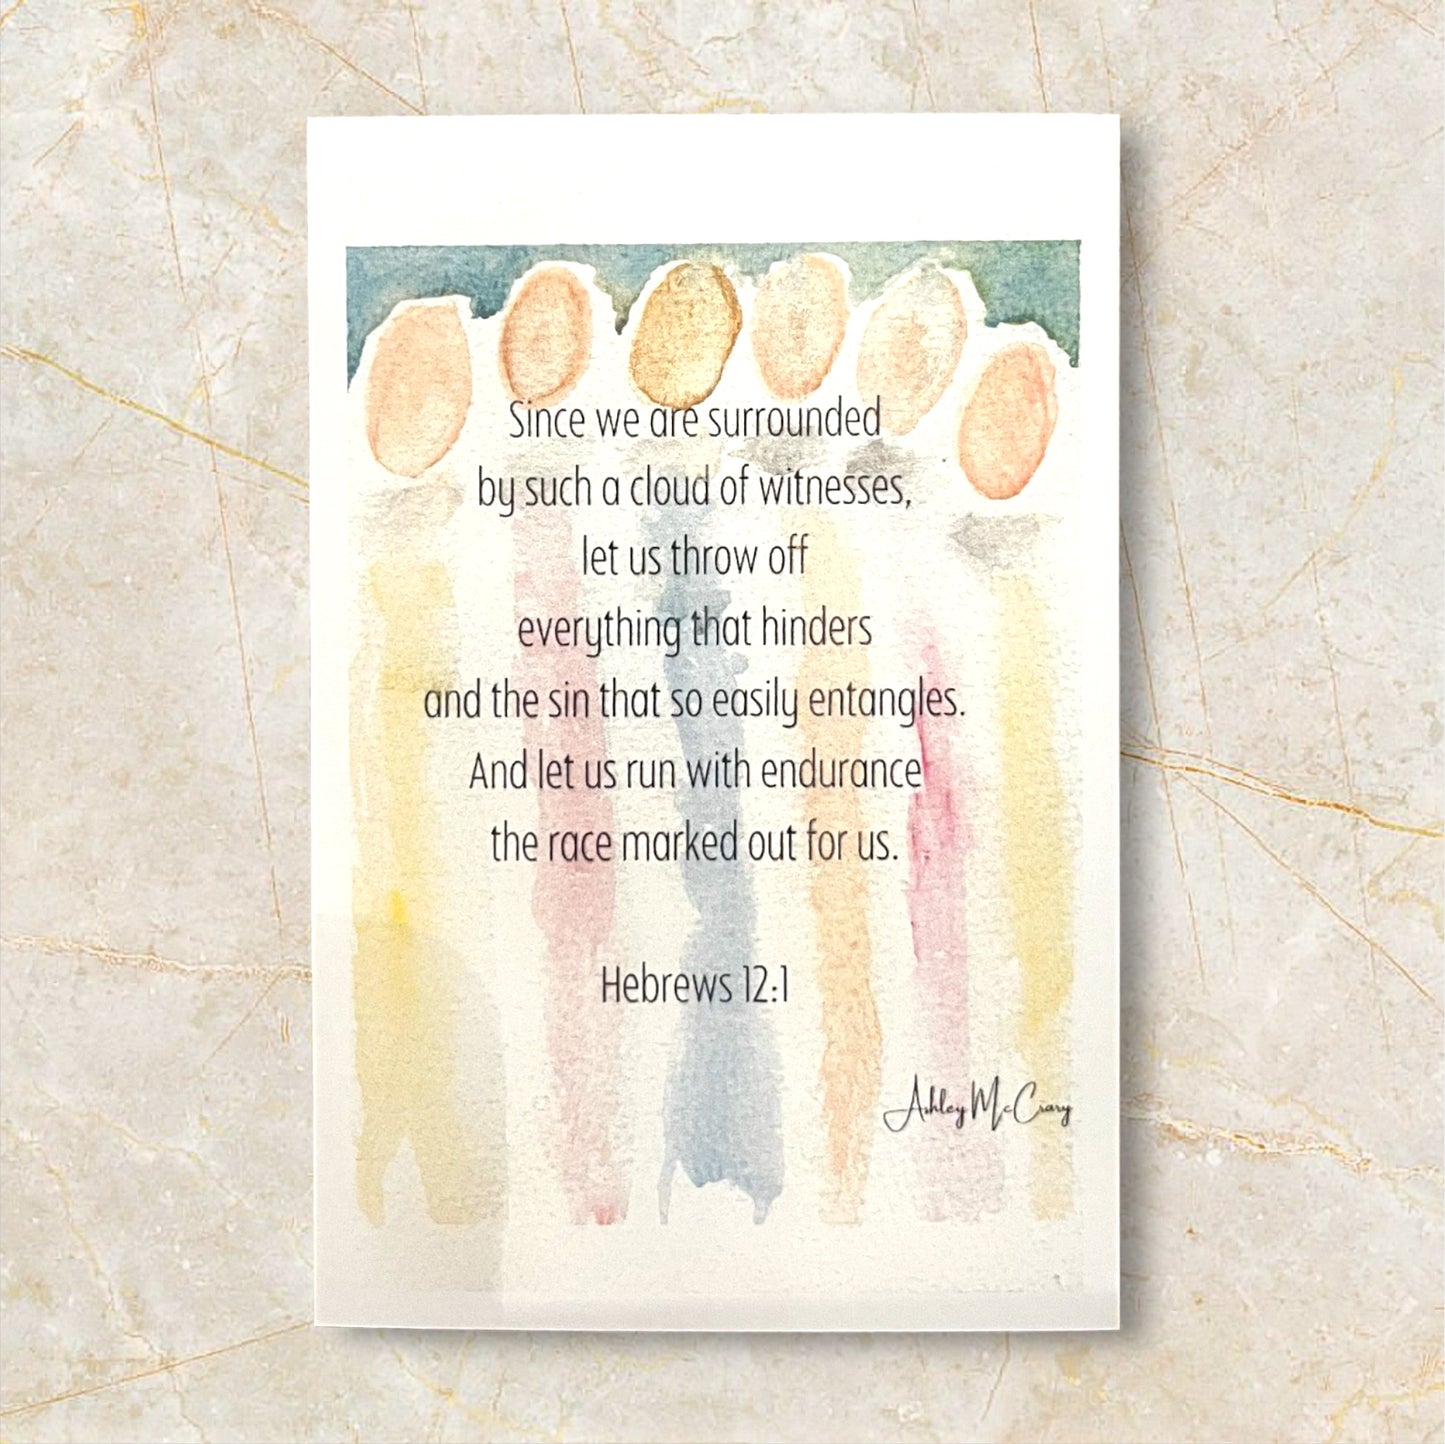 Since we are surrounded
by such a cloud of witnesses,
let us throw off
everything that hinders
and the sin that so easily entangles.
And let us run with endurance
the race marked out for us.
Hebrews 12:1
Ashley McCrary